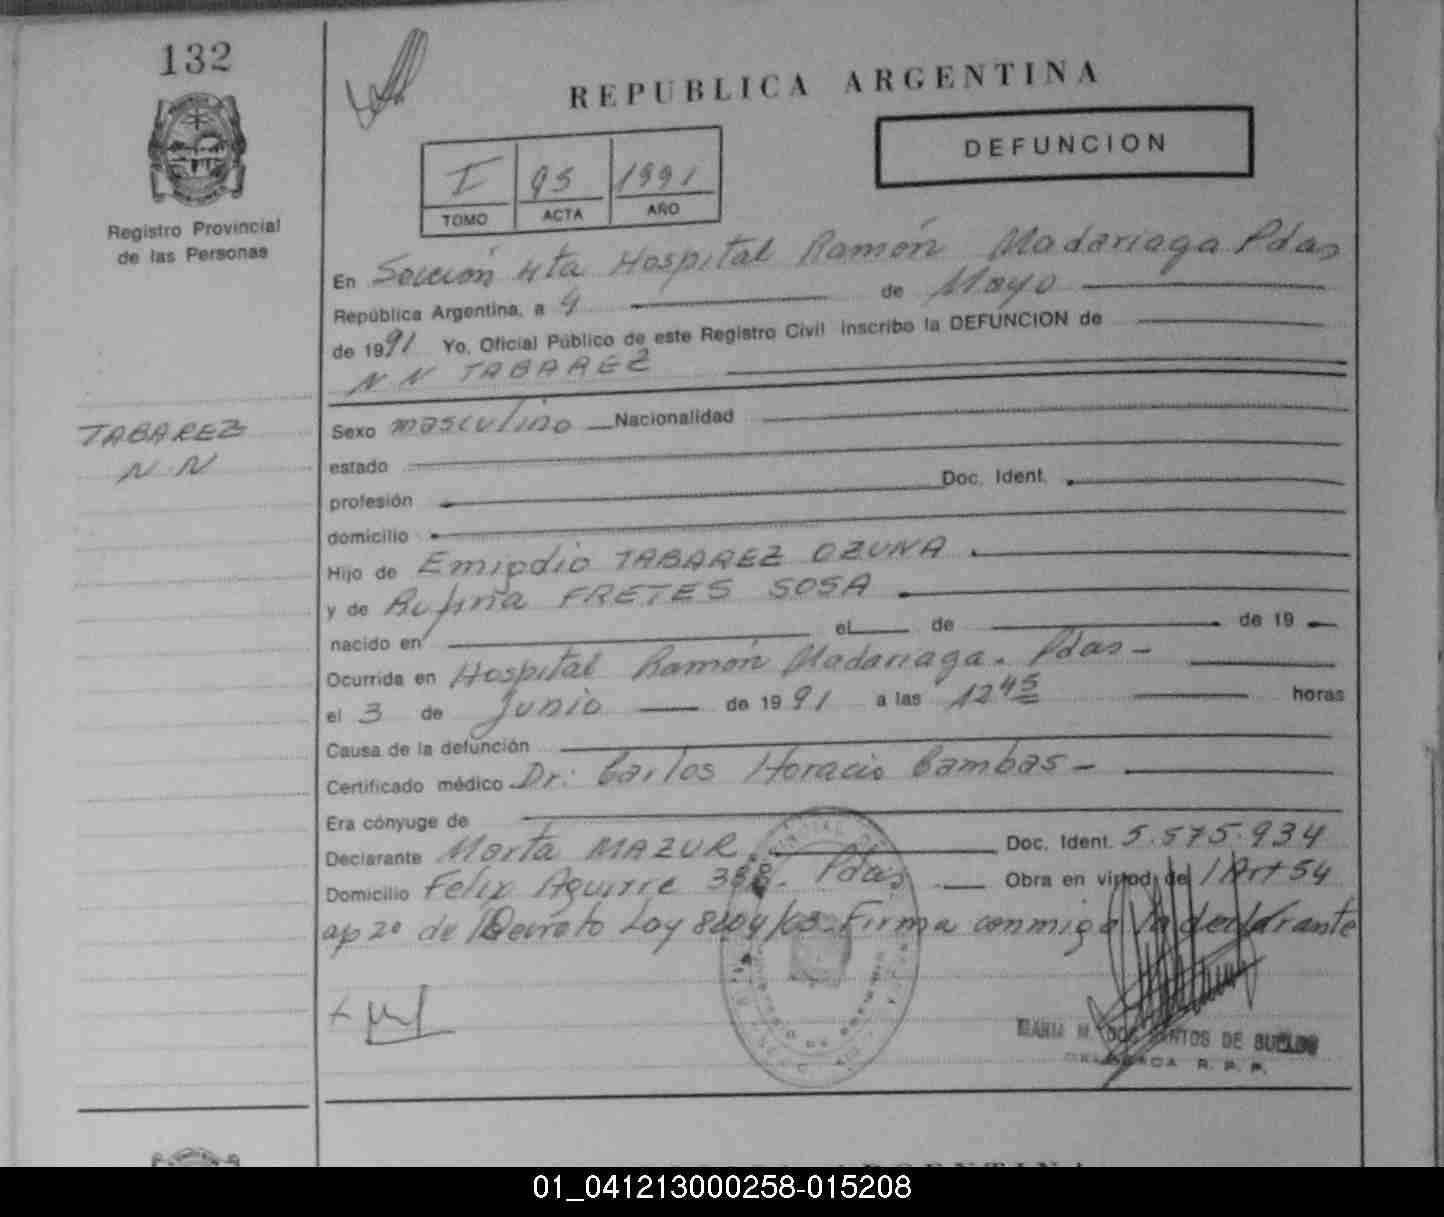 132
REPUBLICA ARGENTINA
DEFUNCION
I 95 1991
TOMO ACTA AÑO
Registro Provincial
de las Personas
En Sección 4ta Hospital Ramón Madariaga Pdas
República Argentina, a 4 de Mayo
de 1991 Yo, Oficial Público de este Registro Civil inscribo la DEFUNCION de
N N TABAREZ
TABAREZ
N.N
Sexo masculino Nacionalidad
estado
profesión Doc. Ident.
domicilio
Hijo de Emigdio TABAREZ OZUNA
y de Rufina FRETES SOSA
nacido en el de de 19
Ocurrida en Hospital Ramón Madariaga. Pdas-
el 3 de Junio de 1991 a las 12 45 horas
Causa de la defunción
Certificado médico Dr: Carlos Horacio Cambas-
Era cónyuge de
Declarante Marta MAZUR Doc. Ident. 5.575.934
Domicilio Felix Aguirre Pdas Obra en virtud de / Art 54
ap 2º de / Decreto Ley 8204/63. Firma conmigo la declarante
MARIA M. DOS SANTOS DE SUELDO
R. P. P.
01_041213000258-015208